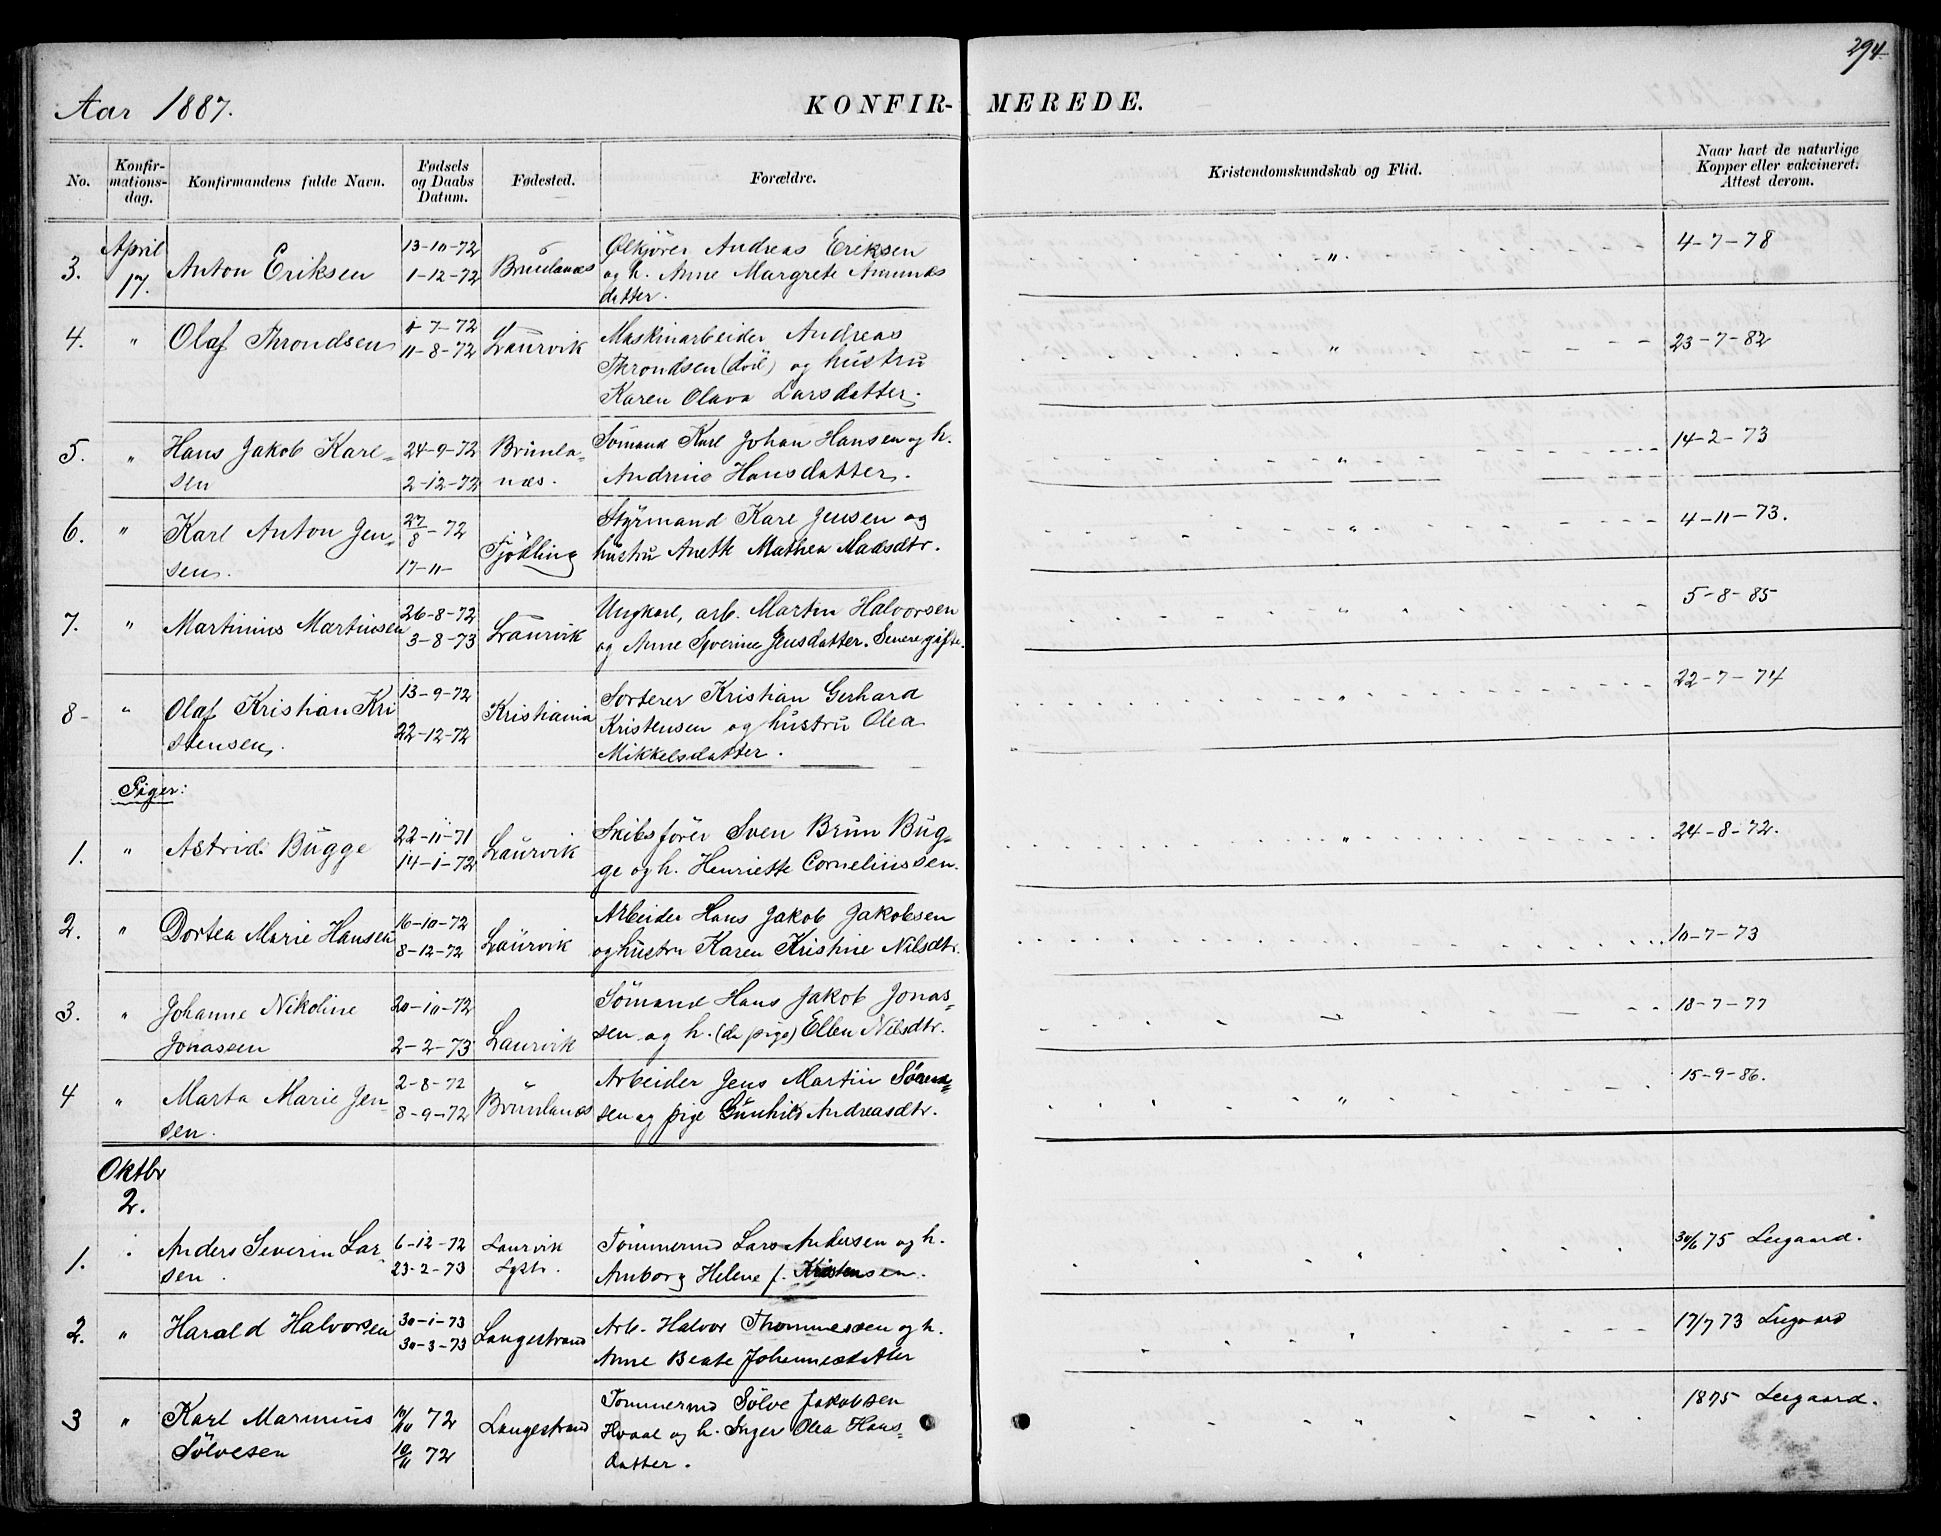 294
Aar 1887.
KONFIR-MEREDE.
No.
Konfir-
mations-
dag.
Konfirmandens fulde Navn.
Fødsels
og Daabs
Datum.
Fødested.
Forældre.
Kristendomskundskab og Flid.
Naar havt de naturlige
Kopper eller vakcineret.
Attest derom.
3.
April
17.
Anton Eriksen
13-10-72
1-12-72
Brunlanæs
Ølkjører Andreas Eriksen
og h. Anne Margrete Amunds
datter.
"
4-7-78
4.
"
Olaf Throndsen
1-7-72
11-8-72
Laurvik
Maskinarbeider Andreas
Throndsen (död) og hustru
Karen Olava Larsdatter.
"
23-7-82
5.
"
Hans Jakob Karl-
sen
24-9-72
2-12-72
Brunla-
næs.
Sømand Karl Johan Hansen og h.
Andrine Hansdatter.
"
14-2-73
6.
"
Karl Anton Jen-
sen.
27/8-72
17-11-
Tjölling
Styrmand Karl Jensen og
hustru Anette Mathea Madsdtr.
"
4-11-73.
7.
"
Martinius Martinsen
26-8-72
3-8-73
Laurvik
Ungkarl, arb. Martin Halvorsen
og Anne Severine Jensdatter. Senere gifte.
"
5-8-85
8-
"
Olaf Kristian Kri
stensen.
13-9-72
22-12-72
Kristiania
Sorterer Kristian Gerhard
Kristensen og hustru Olea
Mikkelsdatter.
"
22-7-74
Piger:
1.
"
Astrid Bugge
22-11-71
14-1-72
Laurvik
Skibsfører Sven Brun Bug-
ge og h. Henriette Corneliussen.
"
24-8-72.
2.
"
Dortea Marie Hansen
16-10-72
8-12-72
Laurvik
Arbeider Hans Jakob Jakobsen
og hustru Karen Kristine Nilsdtr.
10-7-73
3.
"
Johanne Nikoline
Jonassen
20-10-72
2-2-73
Laurvik
Sømand Hans Jakob Jonas-
sen og h. (da pige) Ellen Nilsdtr.
18-7-77
4
"
Marta Marie Jen-
sen.
2-8-72
8-9-72
Brunlanæs
Arbeider Jens Martin Sören-
sen og pige Gunhild Andreasdtr.
"
15-9-86.
Oktbr
2.
1.
Anders Severin Lar-
sen.
6-12-72
23-2-73
Laurvik
Tömmermd Lars Andersen og h.
Amborg Helene f. Kristensen.
"
30/6 75 Leegaard.
2.
"
Harald Halvorsen
30-1-73
30-3-73
Langestrand
Arb. Halvor Thommessen og h.
Anne Beate Johannesdatter
"
17/7 73 Leegaard
3
"
Karl Marinius
Sölvesen
10/10 72
10/11 72
Langestrand
Tömmermd Sölve Jakobsen
Hvaal og h. Inger Olea Hans-
datter.
"
1875 Leegaard.